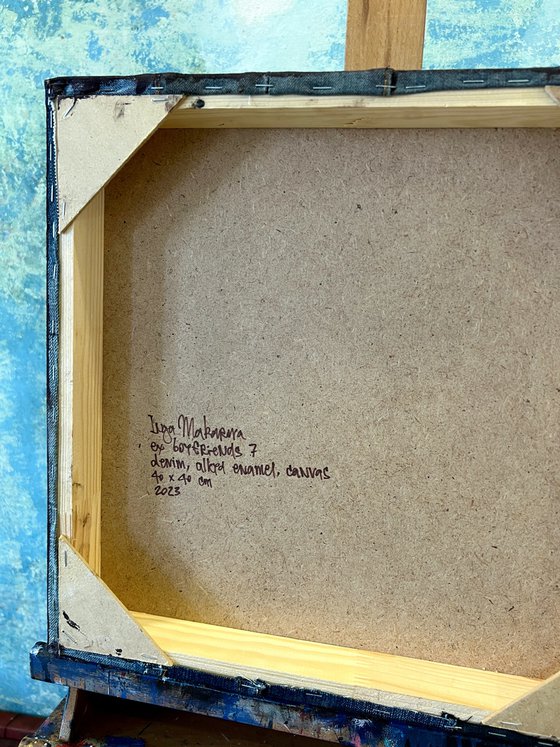 Inga Makarova
ex boyfriends 7
denim, alkyd enamel, canvas
40 x 40 cm
2023